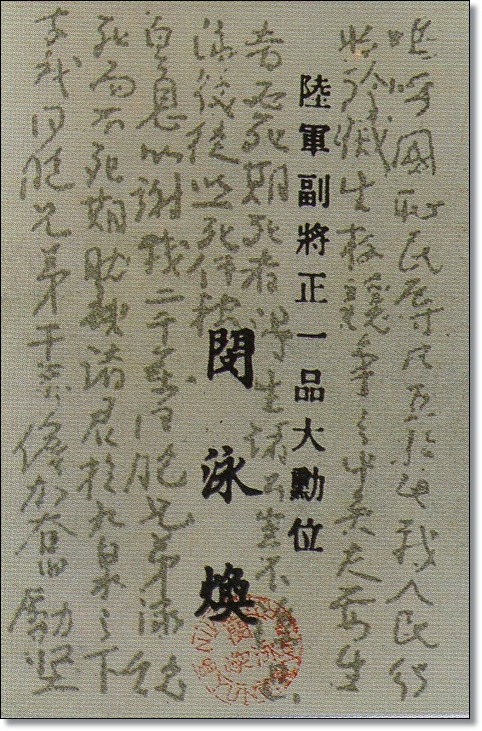 嗚呼國恥民辱乃至於此我人民行
將殄滅生存競爭之中矣夫要生
者必死期死者得生諸公豈不諒
泳煥徒以一死仰報
皇恩以謝我二千萬同胞兄弟泳煥
死而不死期助諸君於九泉之下
幸我同胞兄弟千萬倍加奮勵堅
陸軍副將正一品大勳位
閔泳煥